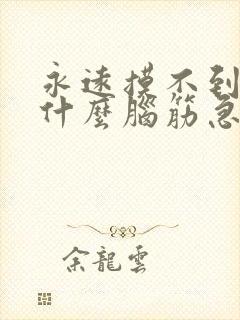 永遠摸不到
什麼腦筋急
余龍雲